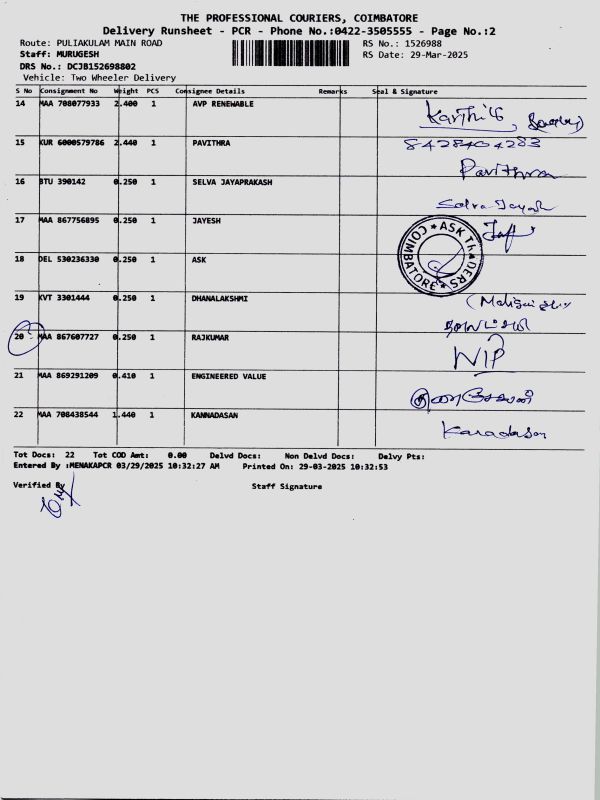 THE PROFESSIONAL COURIERS, COIMBATORE
Delivery Runsheet - PCR - Phone No.:0422-3505555 - Page No.:2
Route: PULIAKULAM MAIN ROAD RS No.: 1526988
Staff: MURUGESH RS Date: 29-Mar-2025
DRS No.: DCJB152698802
Vehicle: Two Wheeler Delivery
S No Consignment No Weight PCS Consignee Details Remarks Seal & Signature
14 MAA 708077933 2.400 1 AVP RENEWABLE
15 KUR 6000579786 2.440 1 PAVITHRA 8428404283
Pavithra
16 BTU 390142 0.250 1 SELVA JAYAPRAKASH
17 MAA 867756895 0.250 1 JAYESH
18 DEL 530236330 0.250 1 ASK
ASK TRADERS COIMBATORE
19 KVT 3301444 0.250 1 DHANALAKSHMI
20 MAA 867607727 0.250 1 RAJKUMAR
21 MAA 869291209 0.410 1 ENGINEERED VALUE
22 MAA 708438544 1.440 1 KANNADASAN
Tot Docs: 22 Tot COD Amt: 0.00 Delvd Docs: Non Delvd Docs: Delvy Pts:
Entered By :MENAKAPCR 03/29/2025 10:32:27 AM Printed On: 29-03-2025 10:32:53
Verified By Staff Signature